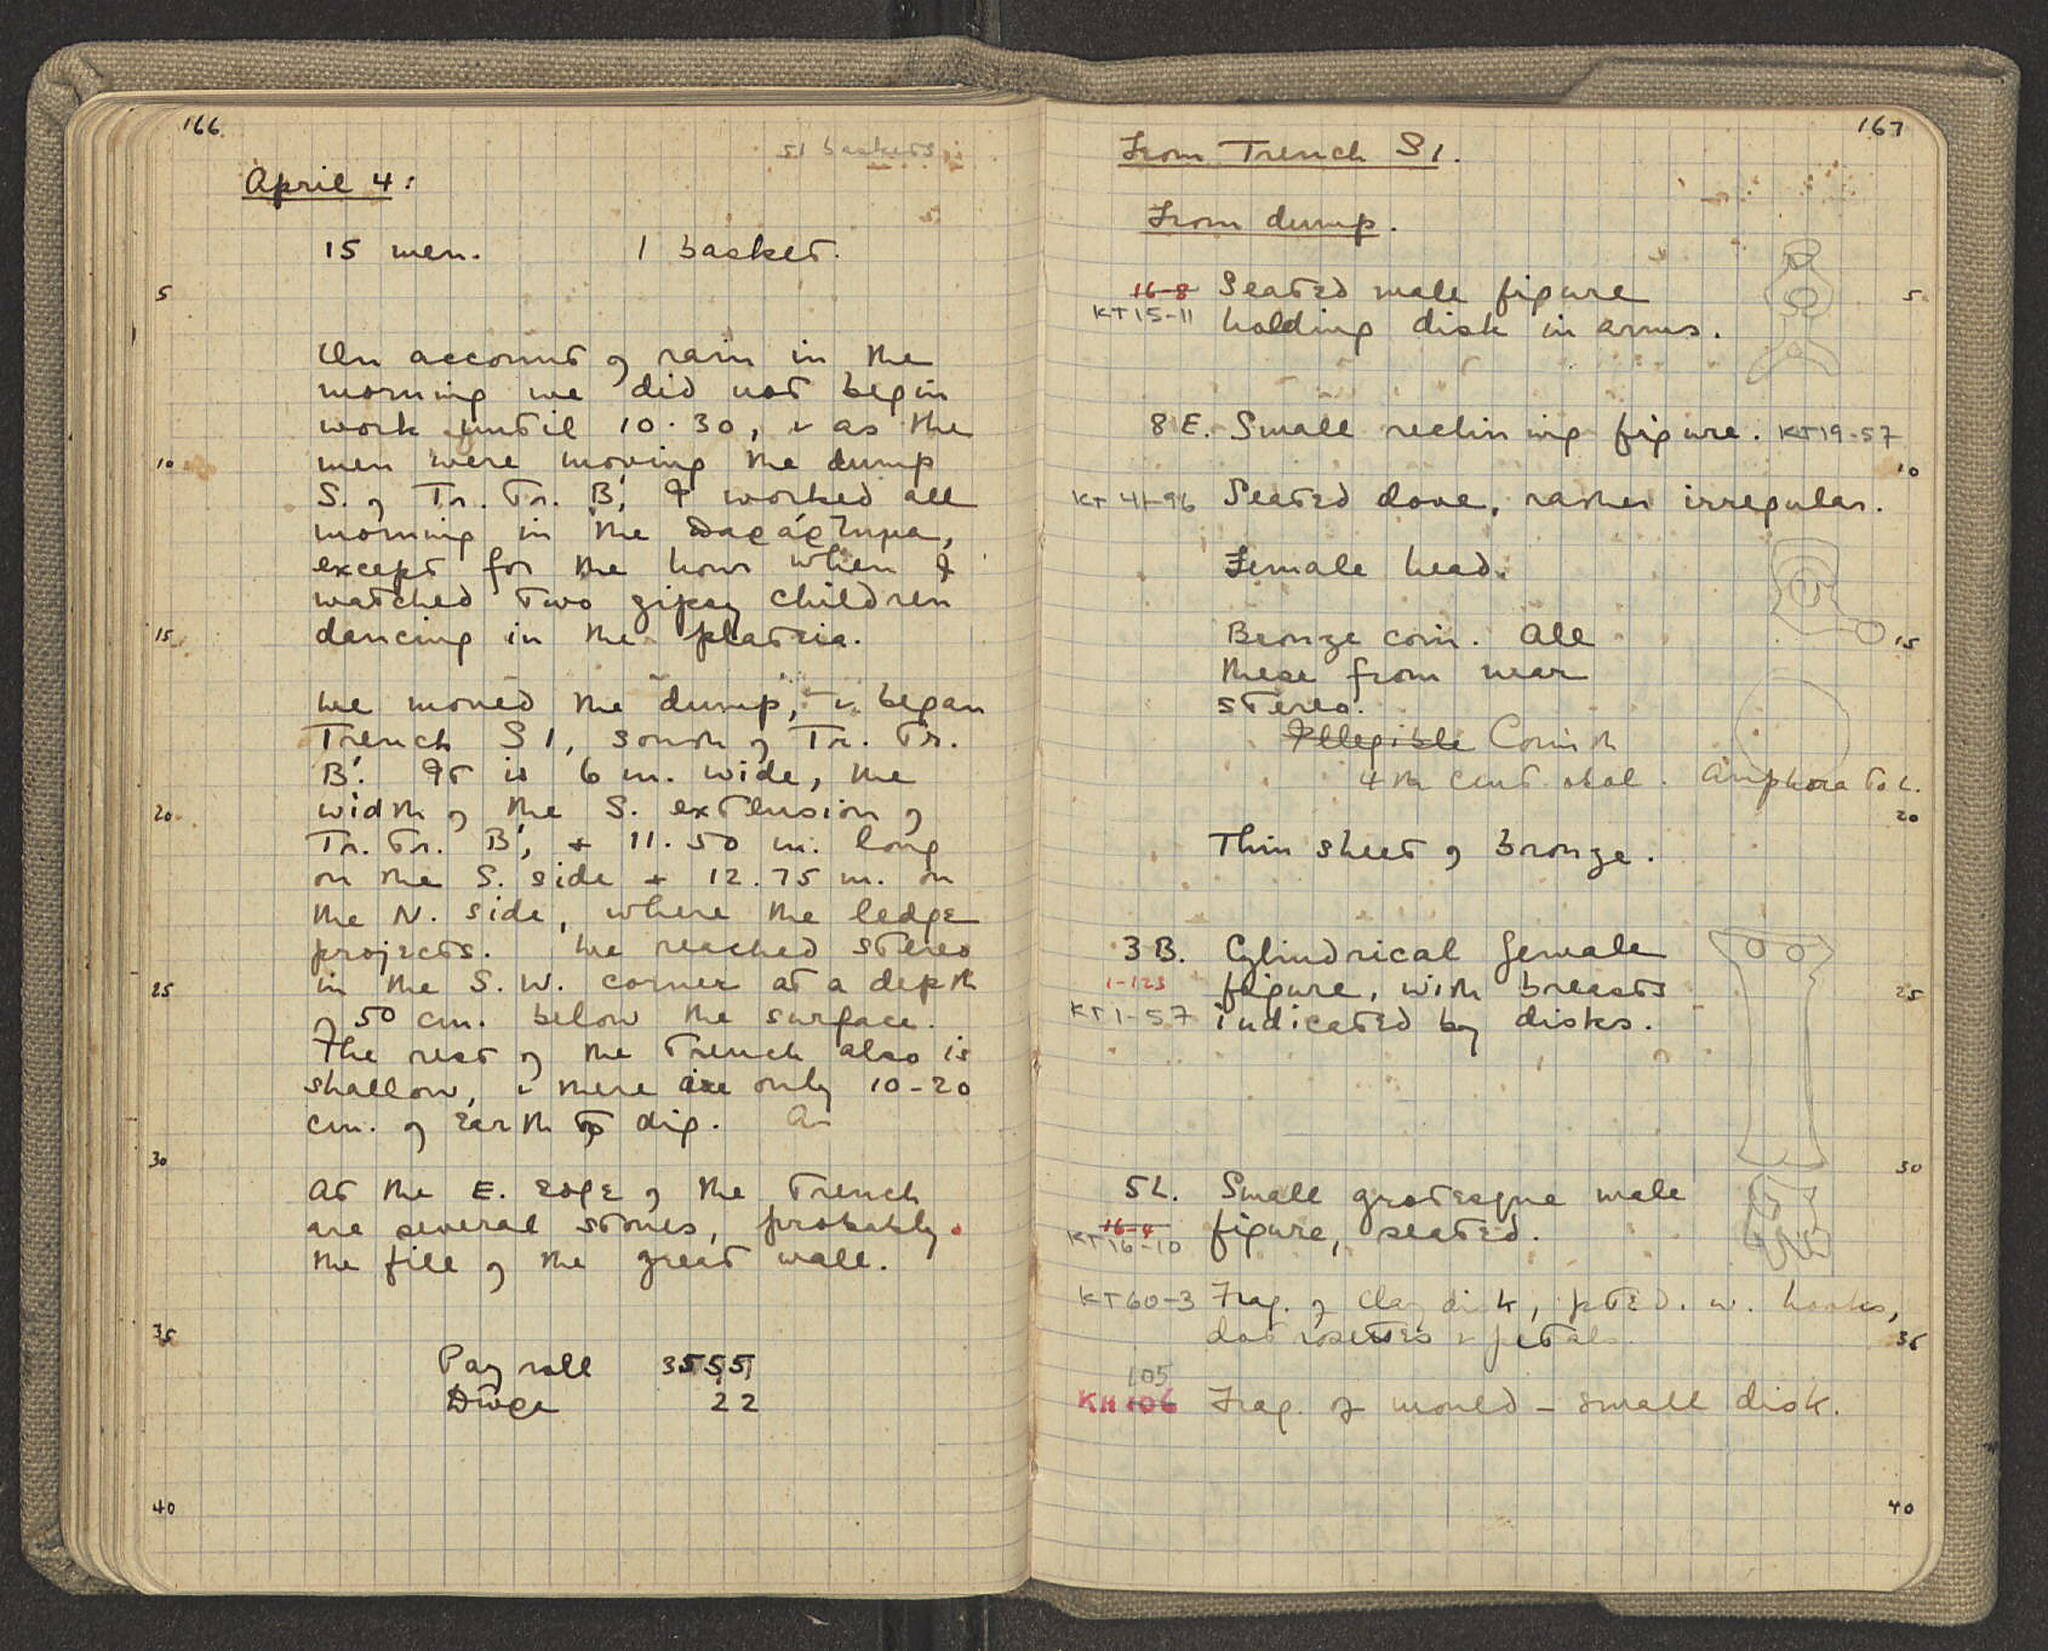 166
51 baskets
April 4:
15 men. 1 basket.
5
On account of rain in the
morning we did not begin
work until 10.30, & as the
10
men were moving the dump
S. of Tr. Tr. B', I worked all
morning in the
except for the hour when I
watched two gipsy children
15
dancing in the plateia.
We moved the dump, & began
Trench S1, south of Tr. Tr.
B'. It is 6 m. wide, the
20
width of the S. extension of
Tr. Tr. B', + 11.50 m. long
on the S. side + 12.75 m. on
the N. side, where the ledge
projects. We reached stereo
25
in the S.W. corner at a depth
of 50 cm. below the surface.
The rest of the trench also is
shallow, & there are only 10-20
cm. of earth to dig. A
30
At the E. edge of the trench
are several stones, probably
the fill of the great wall.
35
Pay roll 3555
22
40
167
From Trench S1.
From dump.
16-8 Seated male figure
5
KT15-11 holding disk in arms.
8E. Small reclining figure. KT19-57
10
KT41-96 Seated dove, rather irregular.
Female head.
Bronze coin. All
15
these from near
stereo.
Illegible Corinth
4th cent obol. Amphora to L.
20
Thin sheet of bronze.
3B. Cylindrical female
1-123 figure, with breasts
25
KT1-57 indicated by disks.
30
5L. Small grotesque male
16-4 figure, seated.
KT16-10
KT60-3 Frag. of clay disk, pted. w. hooks,
dot rosettes & petals
35
105
KH106 Frag. of mould - small disk.
40